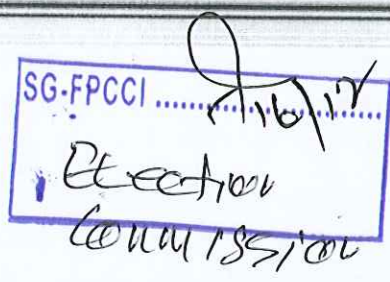 SG-FPCCI ....................
Election
Commission